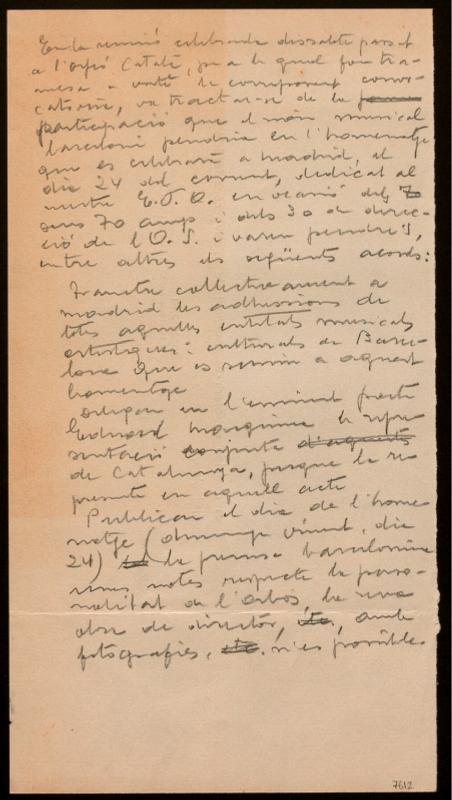 En la reunió celebrada dissabte passat
a l'Orfeó Català, per a la qual fou tra-
mesa a vostè la corresponent convo-
catòria, va tractar-se de la
participació que el món musical
barceloní pendria en l'homenatge
que es celebrarà a Madrid, el
dia 24 del corrent, dedicat al
mestre E. F. A. en ocasió dels 70
seus 70 anys i dels 30 de direc-
ció de l'O. S. i varen pendre's,
entre altres els següents acords:
Trametre collectivament a
Madrid les adhessions de
totes aquelles entitats musicals
artístiques i culturals de Barce-
lona que es sumin a aquest
homenatge
Delegar en l'eminent poeta
Eduard Marquina la repre-
sentació conjunta d'aquests
de Catalunya, perque la re-
presente en aquell acte
Publicar el dia de l'home-
natge (diumenge vinent, dia
24) la premsa barcelonina
unes notes respecte la perso-
nalitat de l'Arbós, la seva
obra de director, etc., amb
fotografies, etc. si es possible.
7612